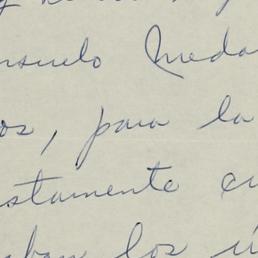 nsuelo Meda
os, para la
stamente cu
ban los ú